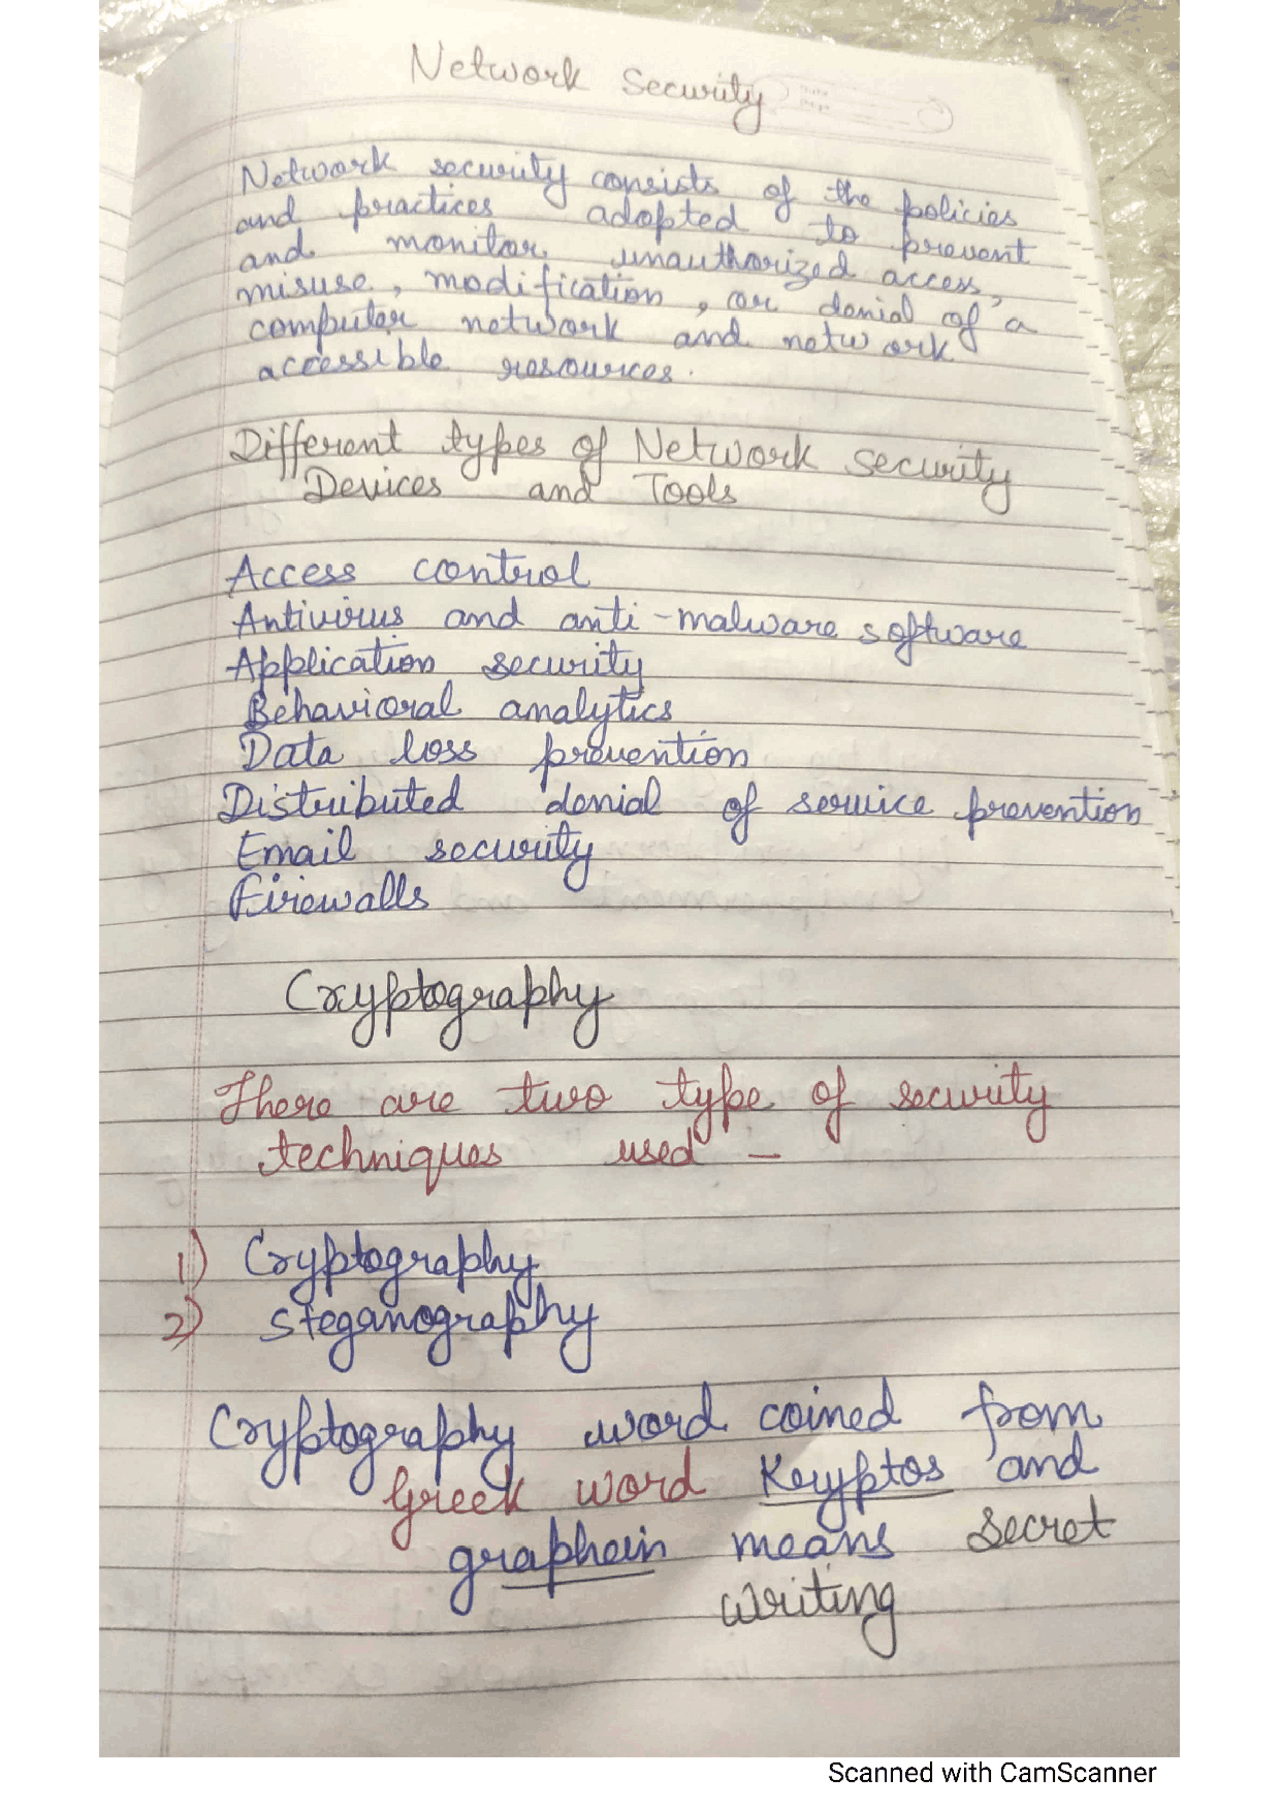 Network Security
Network security consists of the policies
and practices adopted to prevent
and monitor unauthorized access,
misuse, modification, or denial of a
computer network and network
accessible resources.
Different types of Network security
Devices and Tools
Access control
Antivirus and anti-malware software
Application security
Behavioral analytics
Data loss prevention
Distributed denial of service prevention
Email security
Firewalls
Cryptography
There are two type of security
techniques used -
1) Cryptography
2) Steganography
Cryptography word coined from
Greek word Kryptos and
graphein means secret
writing
Scanned with CamScanner